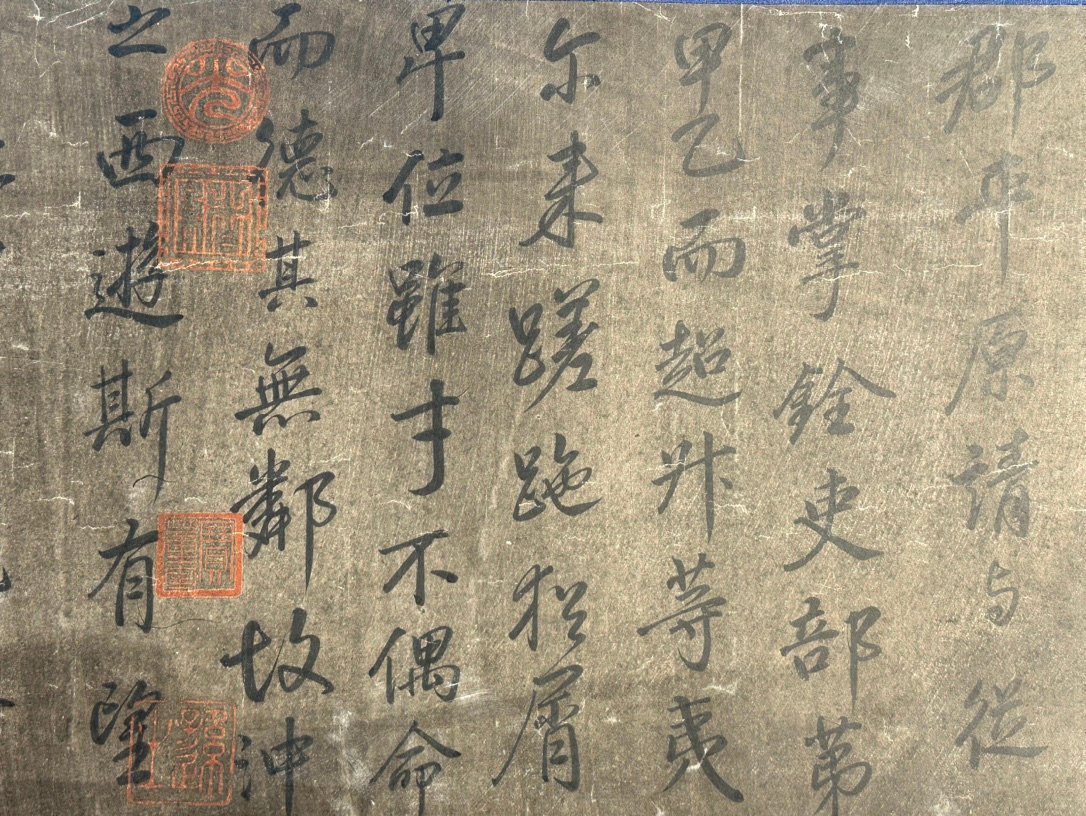 郡平原請与從
事掌銓吏部苐
甲乙而超升等夷
尔来蹉跎猶屑
卑位雖才不偶命
而德其無鄰故沖
之西遊斯有望